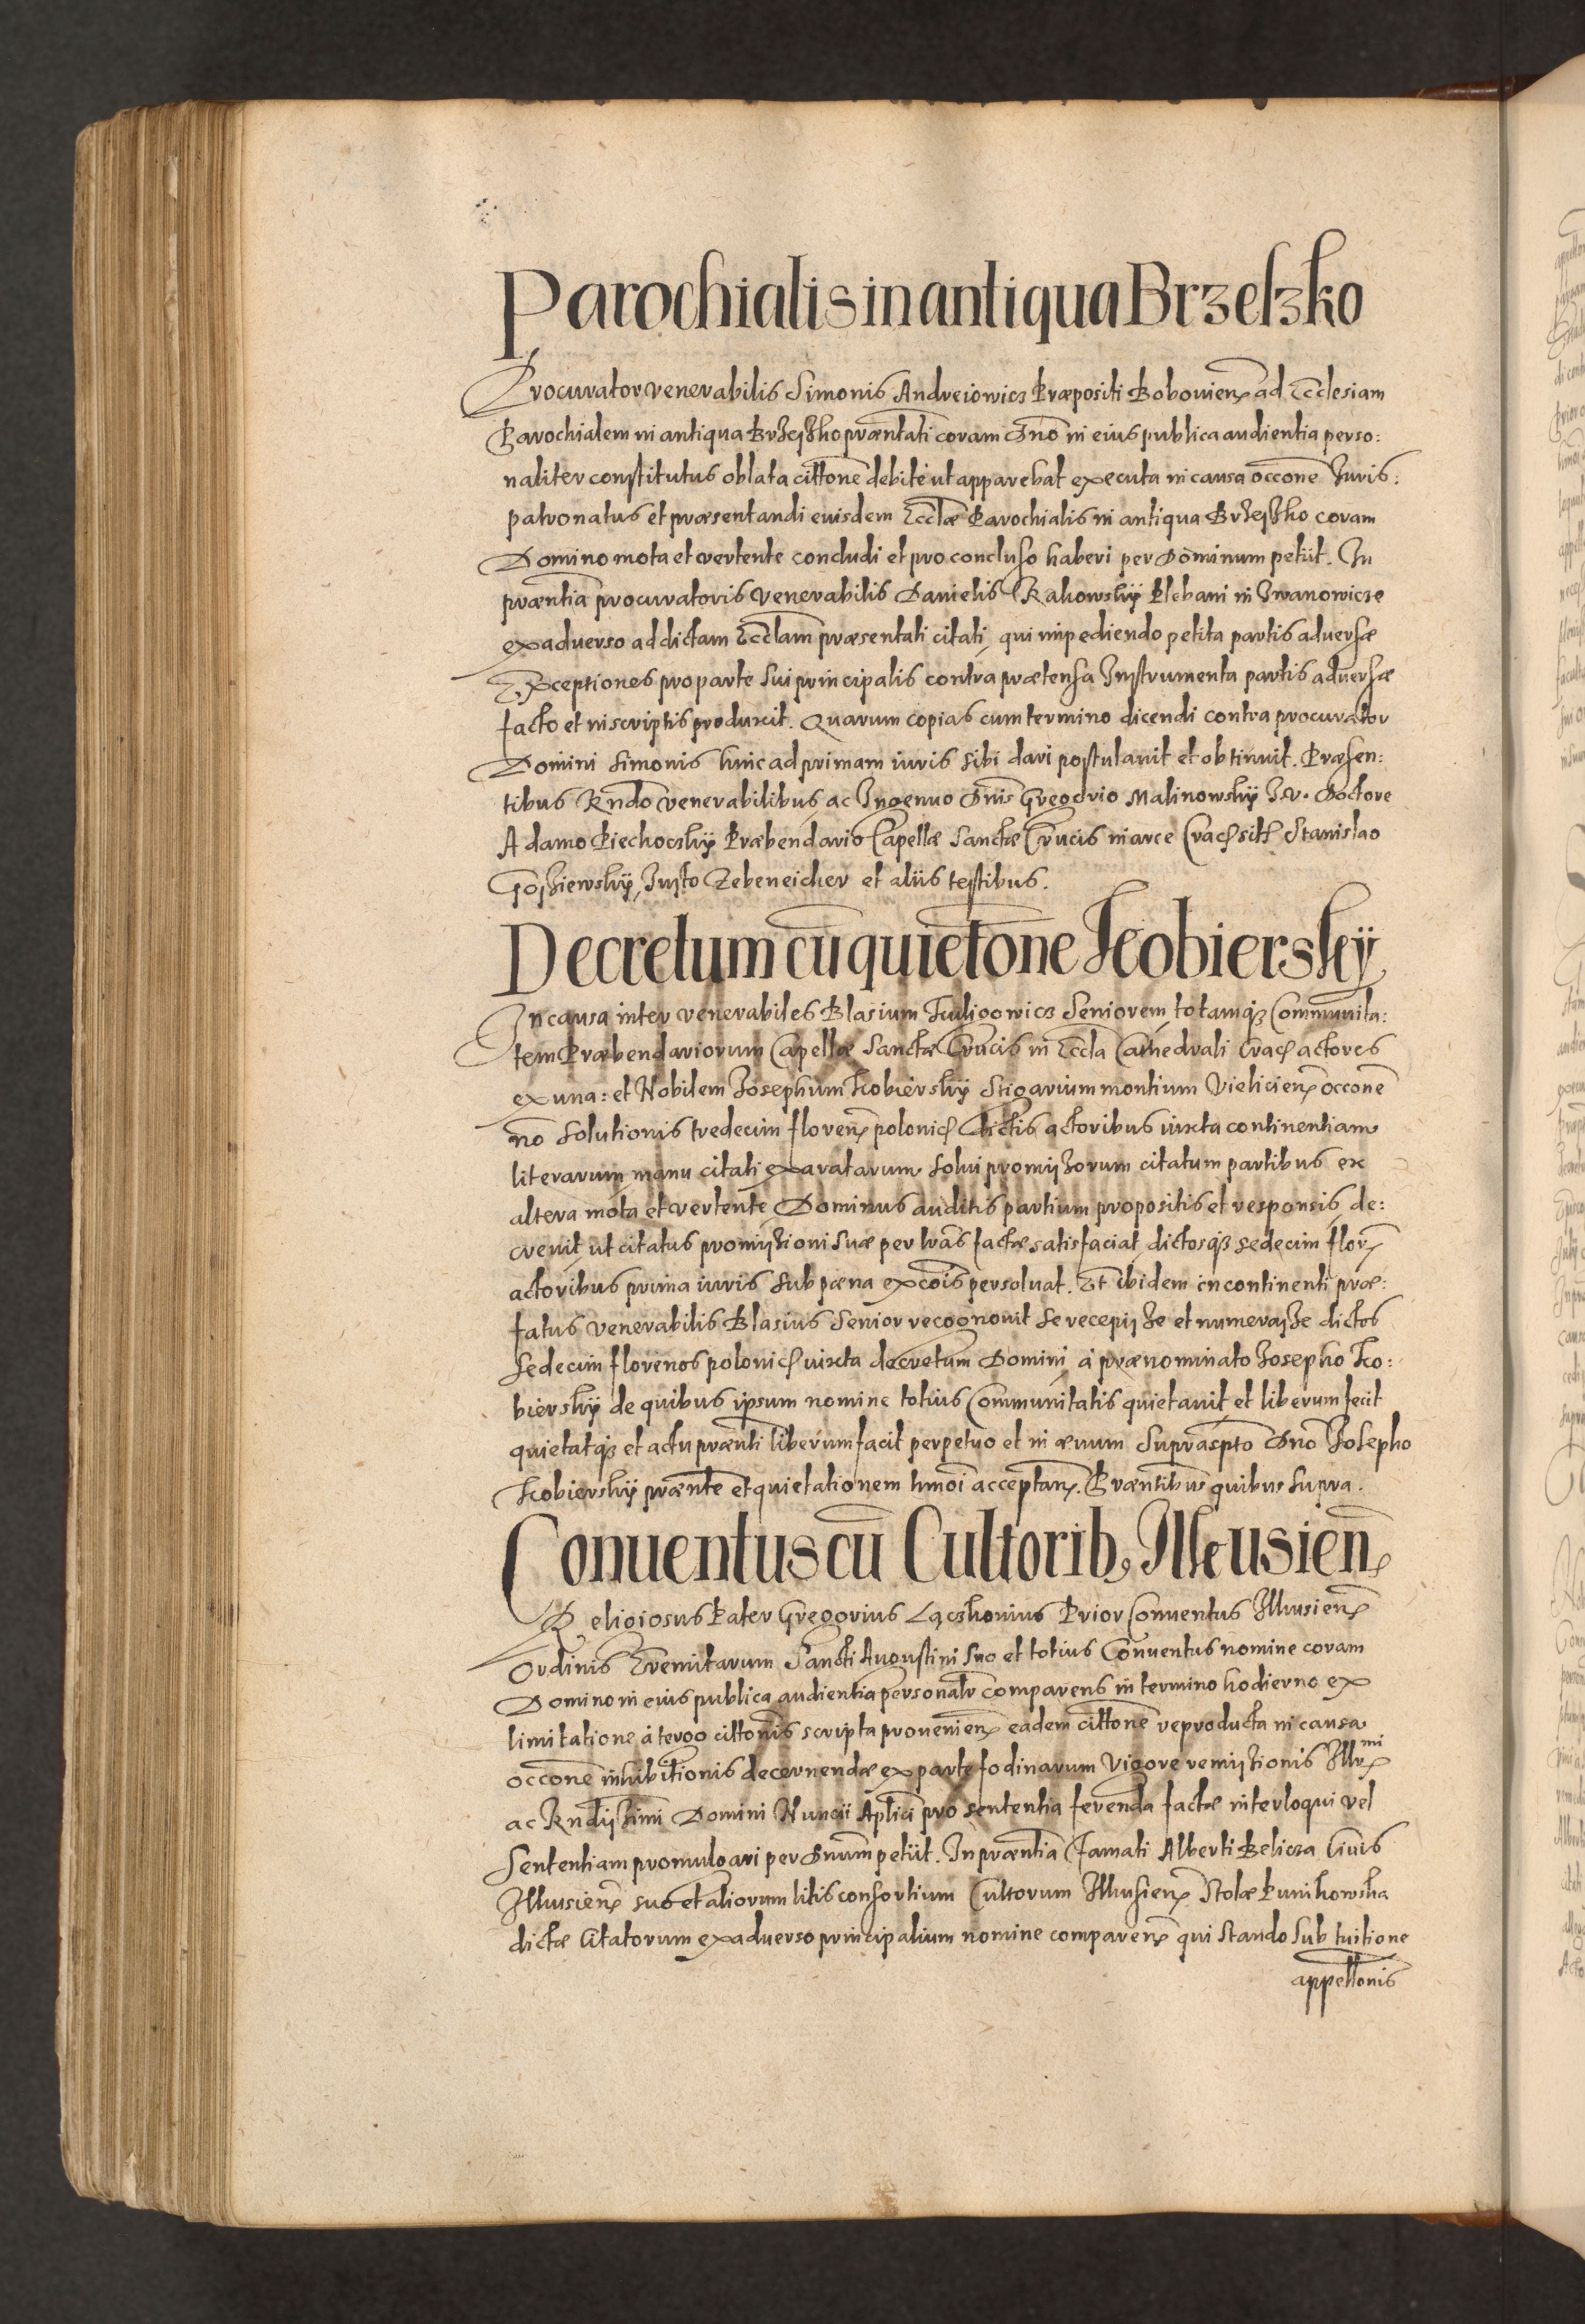 Parochialis in antiqua Brzeszko
Procurator venerabilis Simonis Andreiowicz Præpositi Bobouien̄ ad Ecclesiam
Parochialem in antiqua Brzeszko præntati coram Dno in eius publica audientia perso:
naliter constitutus oblata cittone debite ut apparebat executa in causa occone Iuris:
patronatus et præsentandi eiusdem Ecclæ Parochialis in antiqua Brzeszko coram
Domino mota et vertente concludi et pro concluso haberi per Dominum petiit. In
præntia procuratoris venerabilis Danielis Rakowskÿ Plebani in Iwanowicze
ex aduerso ad dictam Ecclam præsentati citati, qui impediendo petita partis aduersæ
Exceptiones pro parte sui principalis contra prætensa Instrumenta partis aduersæ
facto et in scriptis produxit. Quarum copias cum termino dicendi contra procurator
Domini Simonis hinc ad primam iuris sibi dari postulauit et obtinuit. Præsen:
tibus Rndo venerabilibus ac Ingenuo Dnis Gregorio Malinowskÿ I.V. Doctore
Adamo Piechockÿ Præbendario Capellæ Sanctæ Crucis in arce Crac̄ sitæ Stanislao
GoszIewskÿ, Iusto Zebeneicher et aliis testibus.
Decretum cū quietone Kobierskÿ
In causa inter venerabiles Blasium Kuligowicz Seniorem totamq̃ Communita:
tem Præbendariorum Capellæ Sanctæ Crucis in Eccla Cathedrali Crac̄ actores
ex una: et Nobilem Iosephum Kobierskÿ Stigarium montium Vielicien̄ occone
no solutionis tredecim floren̄ polonic̄ dictis actoribus iuxta continentiam
literarum manu citati exaratarum solui promissorum citatum partibus ex
altera mota et vertente, Dominus auditis partium propositis et responsis de:
creuit ut citatus promissioni suæ per lras factæ satisfaciat, dictosq̃ sedecim flor̄
actoribus prima iuris sub pæna excois persoluat. Et ibidem incontinenti præ:
fatus venerabilis Blasius Senior recognouit se recepisse et numerasse dictos
sedecim florenos polonic̄ iuxta decretum Domini à prænominato Iosepho Ko:
bierskÿ de quibus ipsum nomine totius Communitatis quietauit et liberum fecit
quietatq̃ et actu prænti liberum facit perpetuo et in æuum supraspto Dno Iosepho
Kobierskÿ prænte et quietationem hmoi acceptan̄. Præntibus quibus supra.
Conuentus cū Cultorib, Ilkusien̄
Religiosus Pater Gregorius Lączkonius Prior Conuentus Ilkusien̄
Ordinis Eremitarum Sancti Augustini suo et totius Conuentus nomine coram
Domino in eius publica audientia personalr comparens in termino hodierno ex
limitatione à tergo cittonis scripta prouenien̄ eadem cittone reproducta in causa
occone inhibitionis decernendæ ex parte fodinarum vigore remissionis Illr̄mi
ac Rndissimi Domini Nuncii Aplici pro sententia ferenda factæ interloqui vel
Sententiam promulgari per Dnum petiit. In præntia famati Alberti Belicza Ciuis
Ilkusien̄ suo et aliorum litis consortium Cultorum Ilkusien̄ Stolæ Punikowska
dictæ citatorum ex aduerso principalium nomine comparen̄ qui stando sub tuitione
appellonis